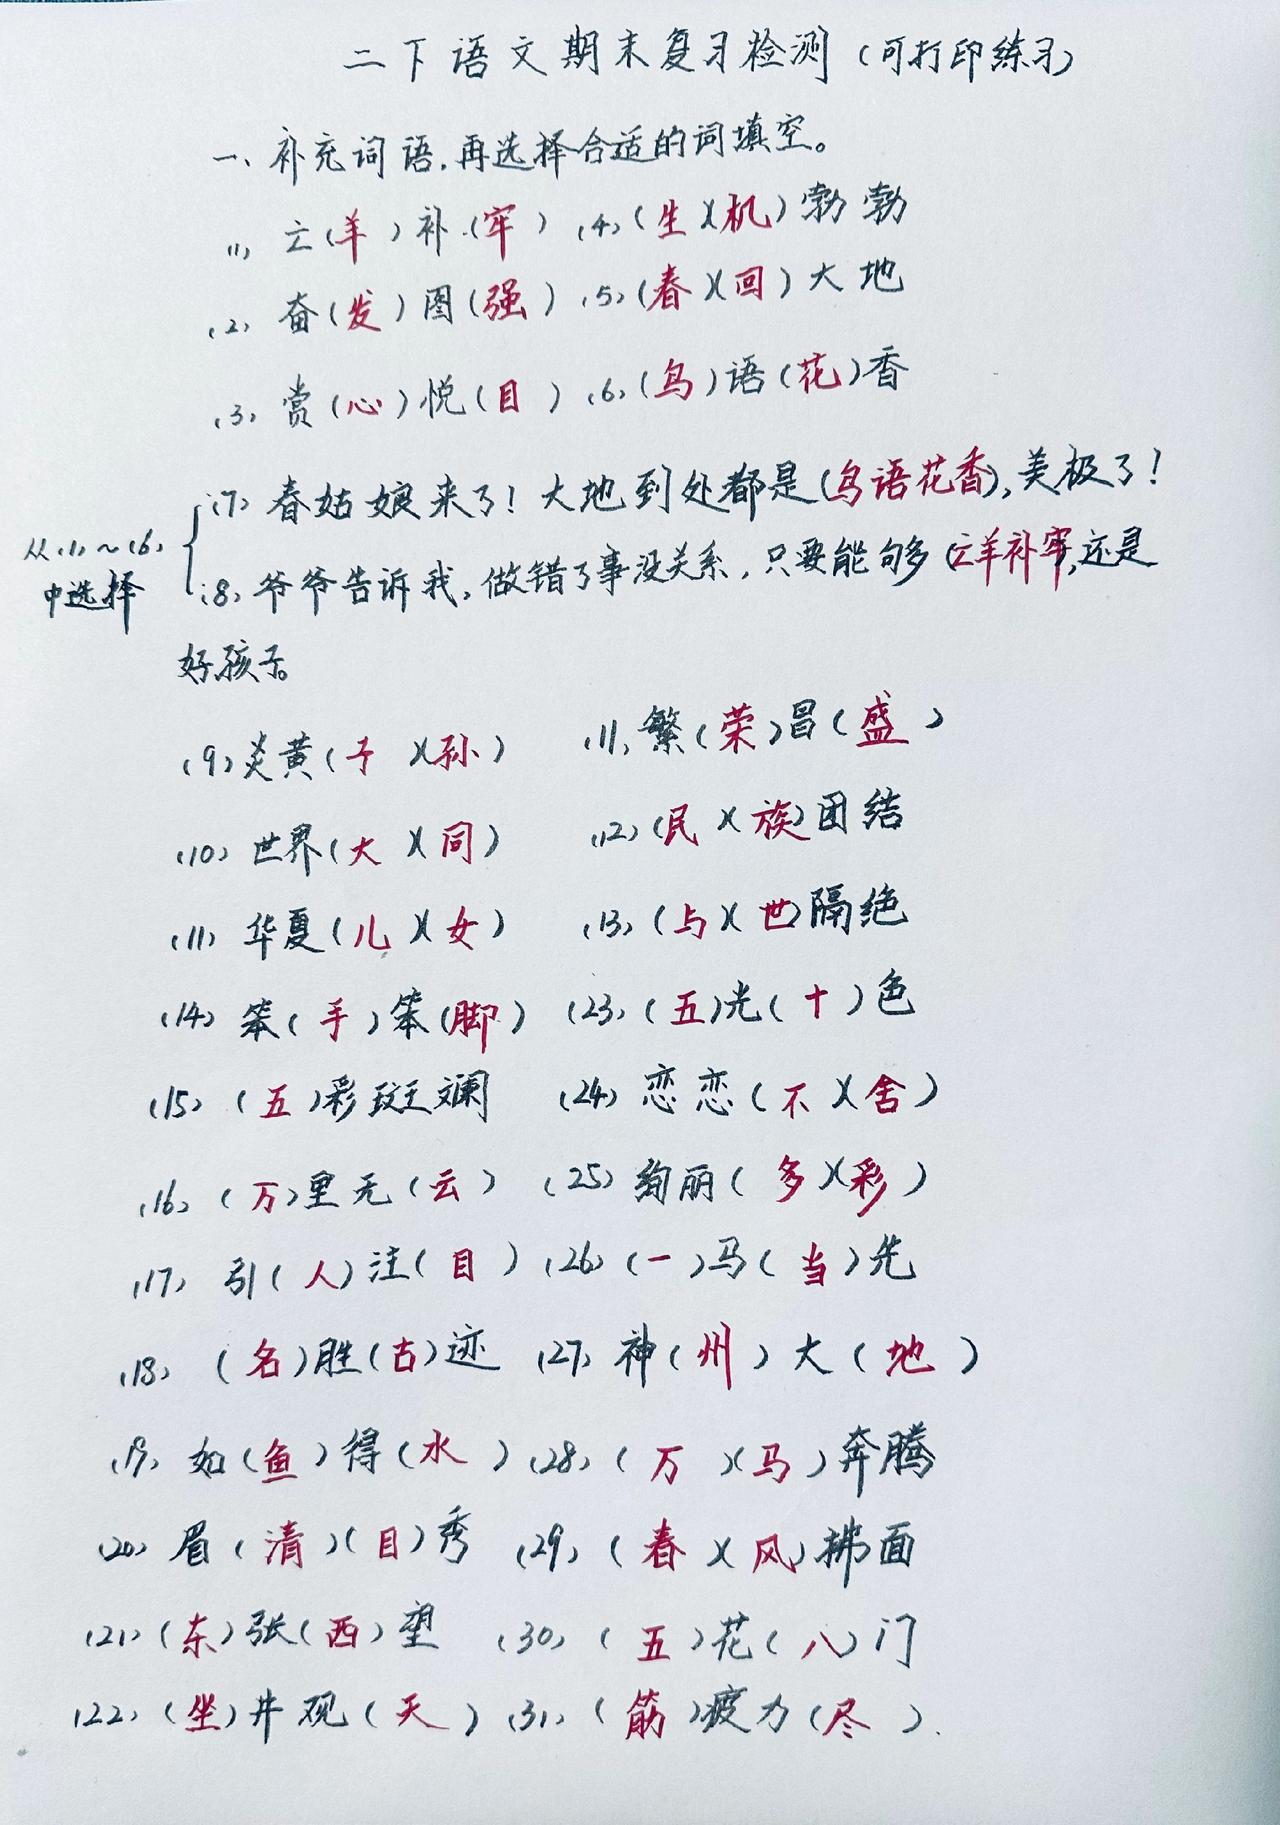 二下语文期末复习检测(可打印练习)
一、补充词语,再选择合适的词填空。
(1) 亡(羊)补(牢) (4) (生)(机)勃勃
(2) 奋(发)图(强) (5) (春)(回)大地
(3) 赏(心)悦(目) (6) (鸟)语(花)香
(7) 春姑娘来了!大地到处都是(鸟语花香),美极了!
从(1)~(6)中选择
(8) 爷爷告诉我,做错了事没关系,只要能够多(亡羊补牢),还是
好孩子。
(9) 炎黄(子)(孙) (11) 繁(荣)昌(盛)
(10) 世界(大)(同) (12) (民)(族)团结
(11) 华夏(儿)(女) (13) (与)(世)隔绝
(14) 笨(手)笨(脚) (23) (五)光(十)色
(15) (五)彩斑斓 (24) 恋恋(不)(舍)
(16) (万)里无(云) (25) 绚丽(多)(彩)
(17) 引(人)注(目) (26) (一)马(当)先
(18) (名)胜(古)迹 (27) 神(州)大(地)
(19) 如(鱼)得(水) (28) (万)(马)奔腾
(20) 眉(清)(目)秀 (29) (春)(风)拂面
(21) (东)张(西)望 (30) (五)花(八)门
(22) (坐)井观(天) (31) (筋)疲力(尽).